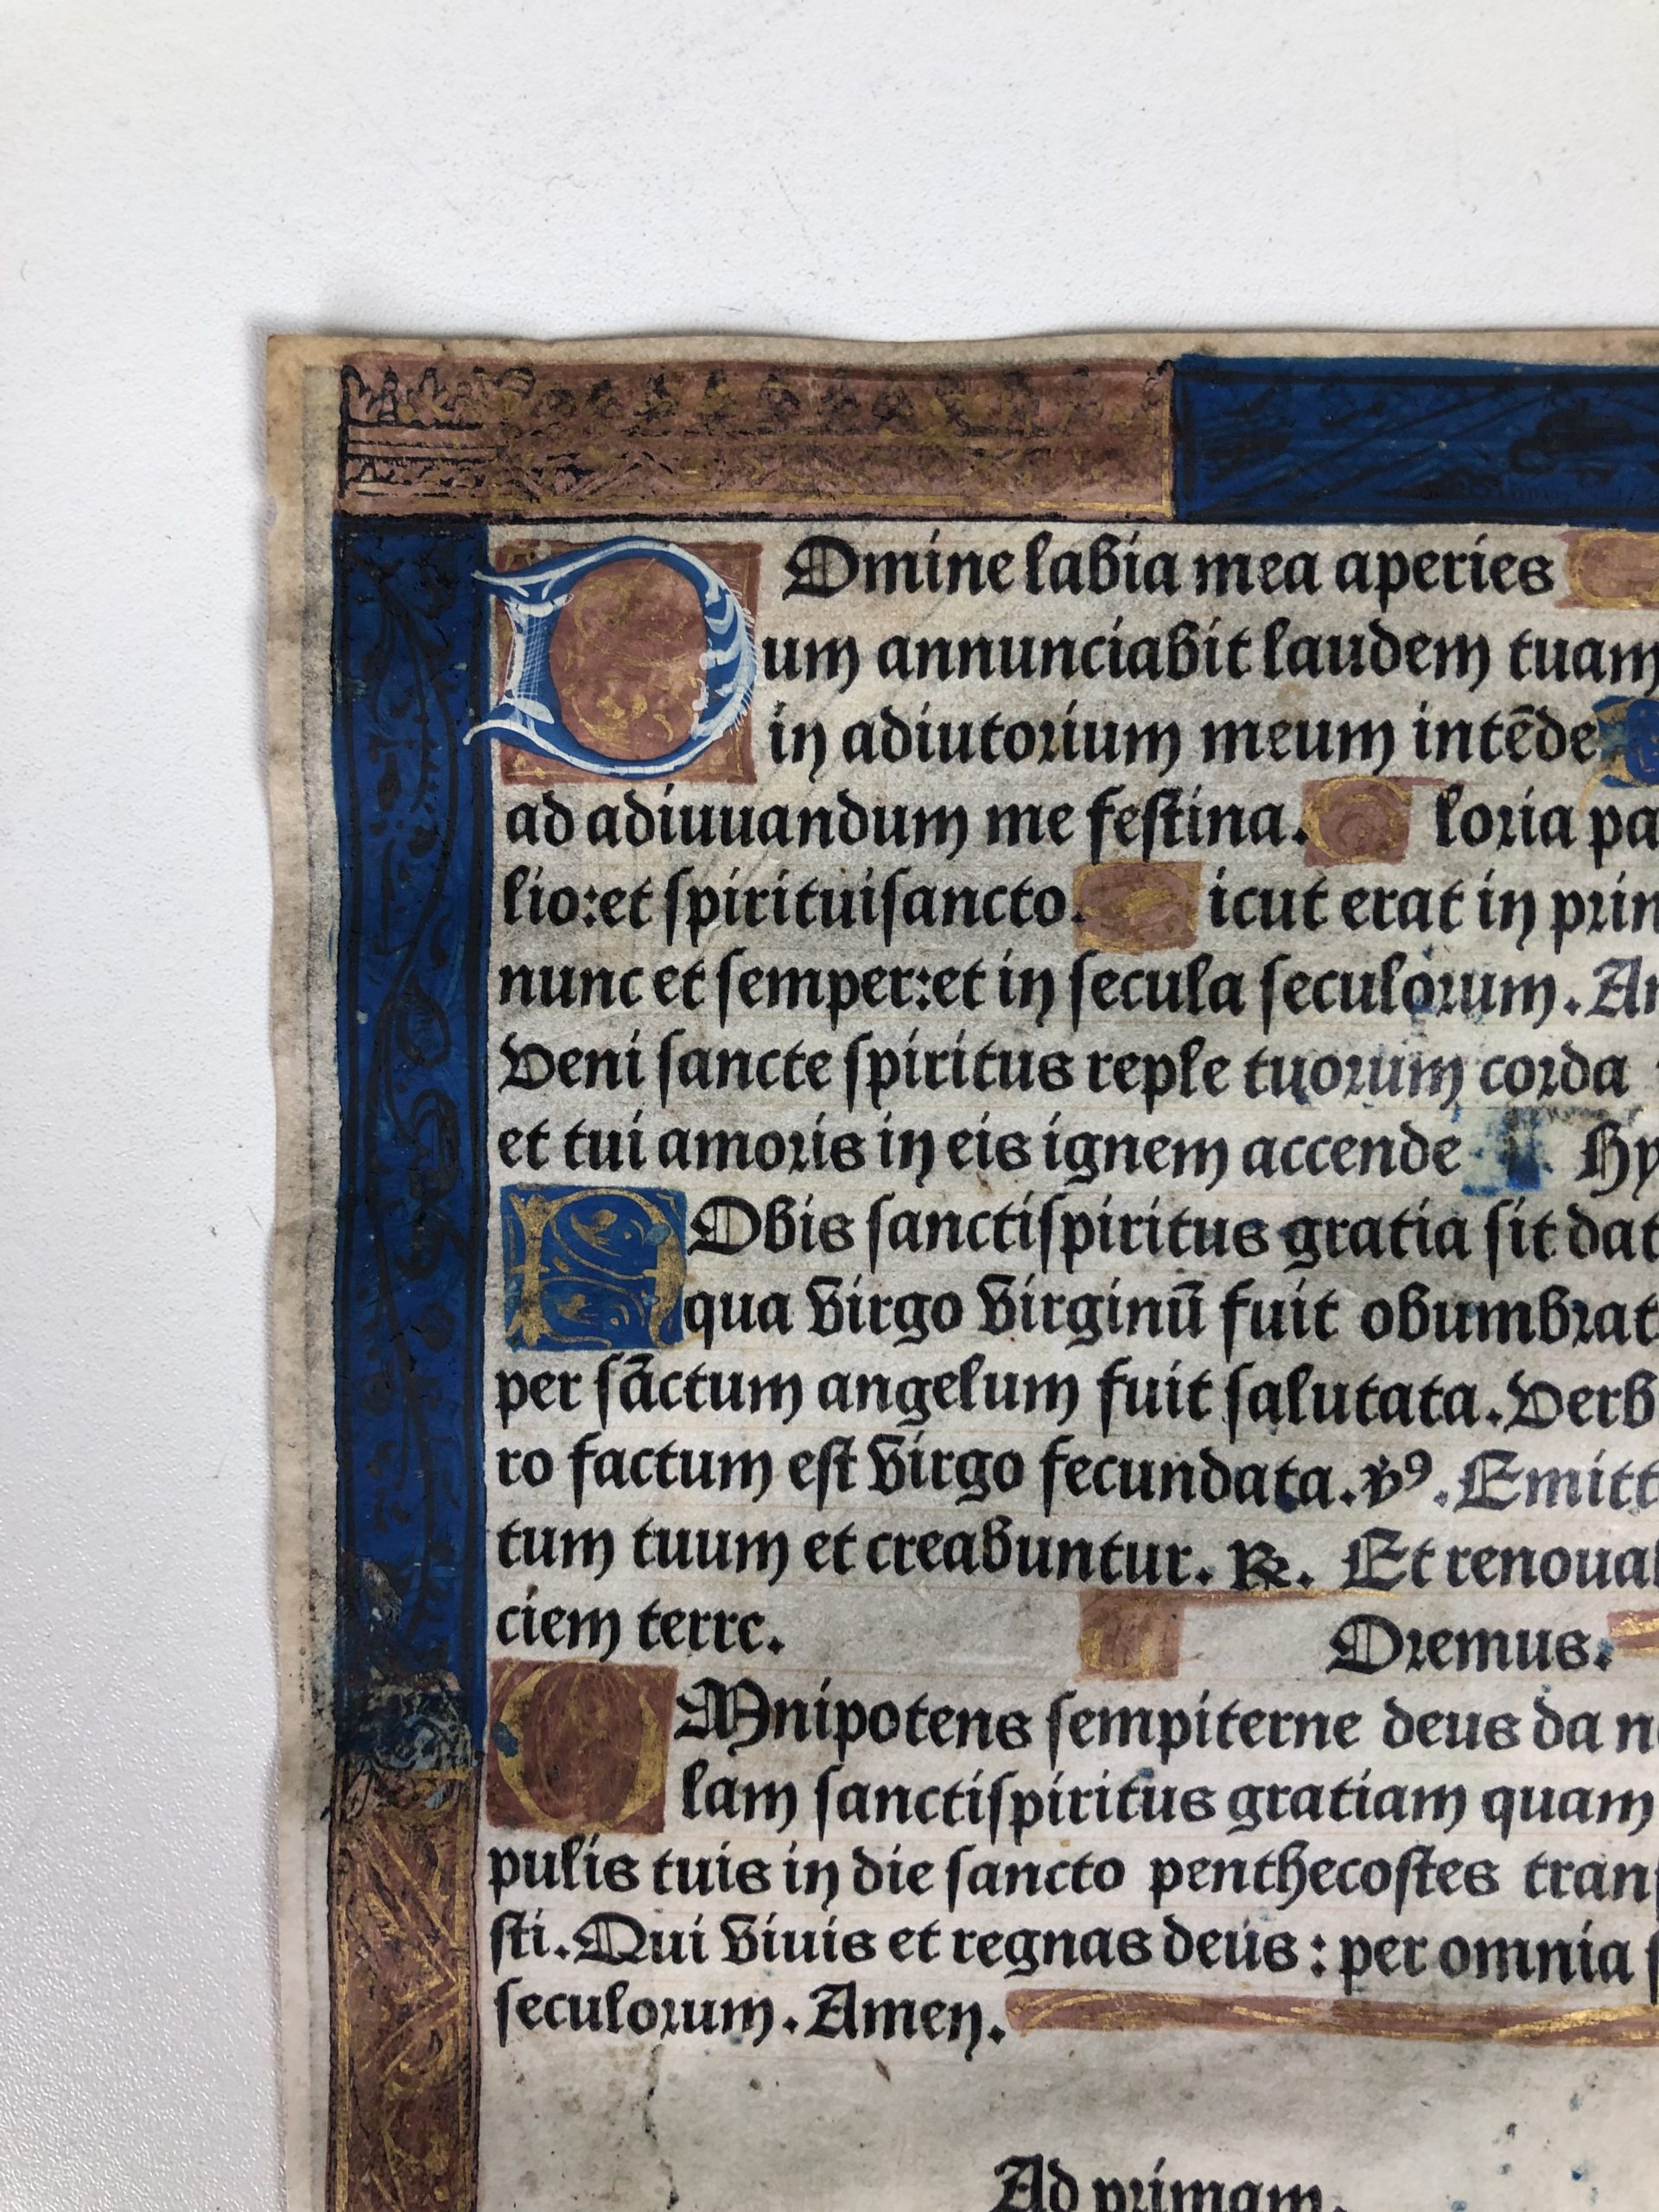 DOmine labia mea aperies
um annunciabit laudem tuam
in adiutorium meum intēde
ad adiuuandum me festina. loria pa
lio:et spirituisancto. icut erat in prin
nunc et semper:et in secula seculorum. Am
Veni sancte spiritus reple tuorum corda
et tui amoris in eis ignem accende Hy
NObis sanctispiritus gratia sit dat
qua virgo virginū fuit obumbrat
per sāctum angelum fuit salutata. Verb
ro factum est virgo fecundata. v⁹. Emitt
tum tuum et creabuntur. ℟. Et renouab
ciem terre. Oremus.
OMnipotens sempiterne deus da no
lam sanctispiritus gratiam quam
pulis tuis in die sancto penthecostes trans
sti. Qui viuis et regnas deus: per omnia s
seculorum. Amen.
Ad primam.